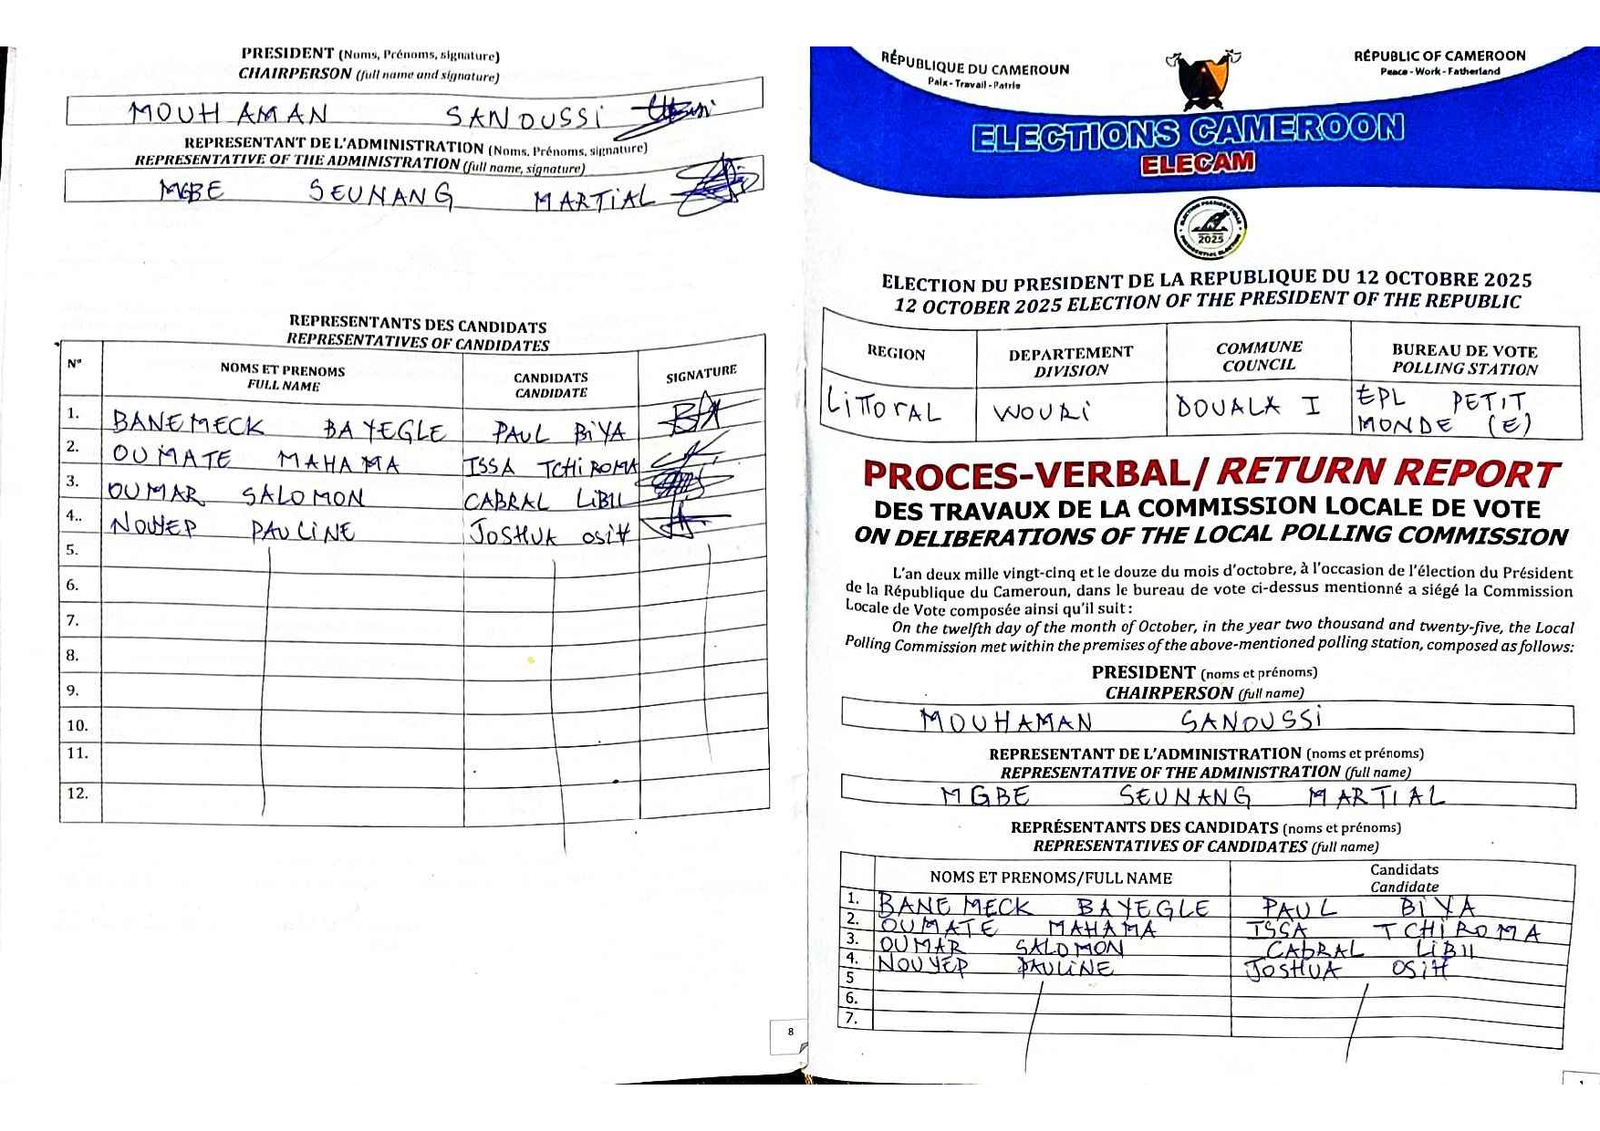 PRESIDENT (Noms, Prénoms, signature)
CHAIRPERSON (full name and signature)
MOUHAMAN SANOUSSI
REPRESENTANT DE L'ADMINISTRATION (Noms, Prénoms, signature)
REPRESENTATIVE OF THE ADMINISTRATION (full name, signature)
MGBE SEUNANG MARTIAL
REPRESENTANTS DES CANDIDATS
REPRESENTATIVES OF CANDIDATES
N° NOMS ET PRENOMS FULL NAME CANDIDATS CANDIDATE SIGNATURE
1. BANEMECK BAYEGLE PAUL BIYA
2. OUMATE MAHAMA ISSA TCHIROMA
3. OUMAR SALOMON CABRAL LIBII
4.. NOUYEP PAULINE JOSHUA OSIH
5.
6.
7.
8.
9.
10.
11.
12.
8
RÉPUBLIQUE DU CAMEROUN
Paix - Travail - Patrie
RÉPUBLIC OF CAMEROON
Peace - Work - Fatherland
ELECTIONS CAMEROON
ELECAM
2025
ELECTION DU PRESIDENT DE LA REPUBLIQUE DU 12 OCTOBRE 2025
12 OCTOBER 2025 ELECTION OF THE PRESIDENT OF THE REPUBLIC
REGION DEPARTEMENT DIVISION COMMUNE COUNCIL BUREAU DE VOTE POLLING STATION
LITTORAL WOURI DOUALA I EPL PETIT MONDE (E)
PROCES-VERBAL/ RETURN REPORT
DES TRAVAUX DE LA COMMISSION LOCALE DE VOTE
ON DELIBERATIONS OF THE LOCAL POLLING COMMISSION
L'an deux mille vingt-cinq et le douze du mois d'octobre, à l'occasion de l'élection du Président
de la République du Cameroun, dans le bureau de vote ci-dessus mentionné a siégé la Commission
Locale de Vote composée ainsi qu'il suit :
On the twelfth day of the month of October, in the year two thousand and twenty-five, the Local
Polling Commission met within the premises of the above-mentioned polling station, composed as follows:
PRESIDENT (noms et prénoms)
CHAIRPERSON (full name)
MOUHAMAN SANOUSSI
REPRESENTANT DE L'ADMINISTRATION (noms et prénoms)
REPRESENTATIVE OF THE ADMINISTRATION (full name)
MGBE SEUNANG MARTIAL
REPRÉSENTANTS DES CANDIDATS (noms et prénoms)
REPRESENTATIVES OF CANDIDATES (full name)
NOMS ET PRENOMS/FULL NAME Candidats Candidate
1. BANEMECK BAYEGLE PAUL BIYA
2. OUMATE MAHAMA ISSA TCHIROMA
3. OUMAR SALOMON CABRAL LIBII
4. NOUYEP PAULINE JOSHUA OSIH
5
6.
7.